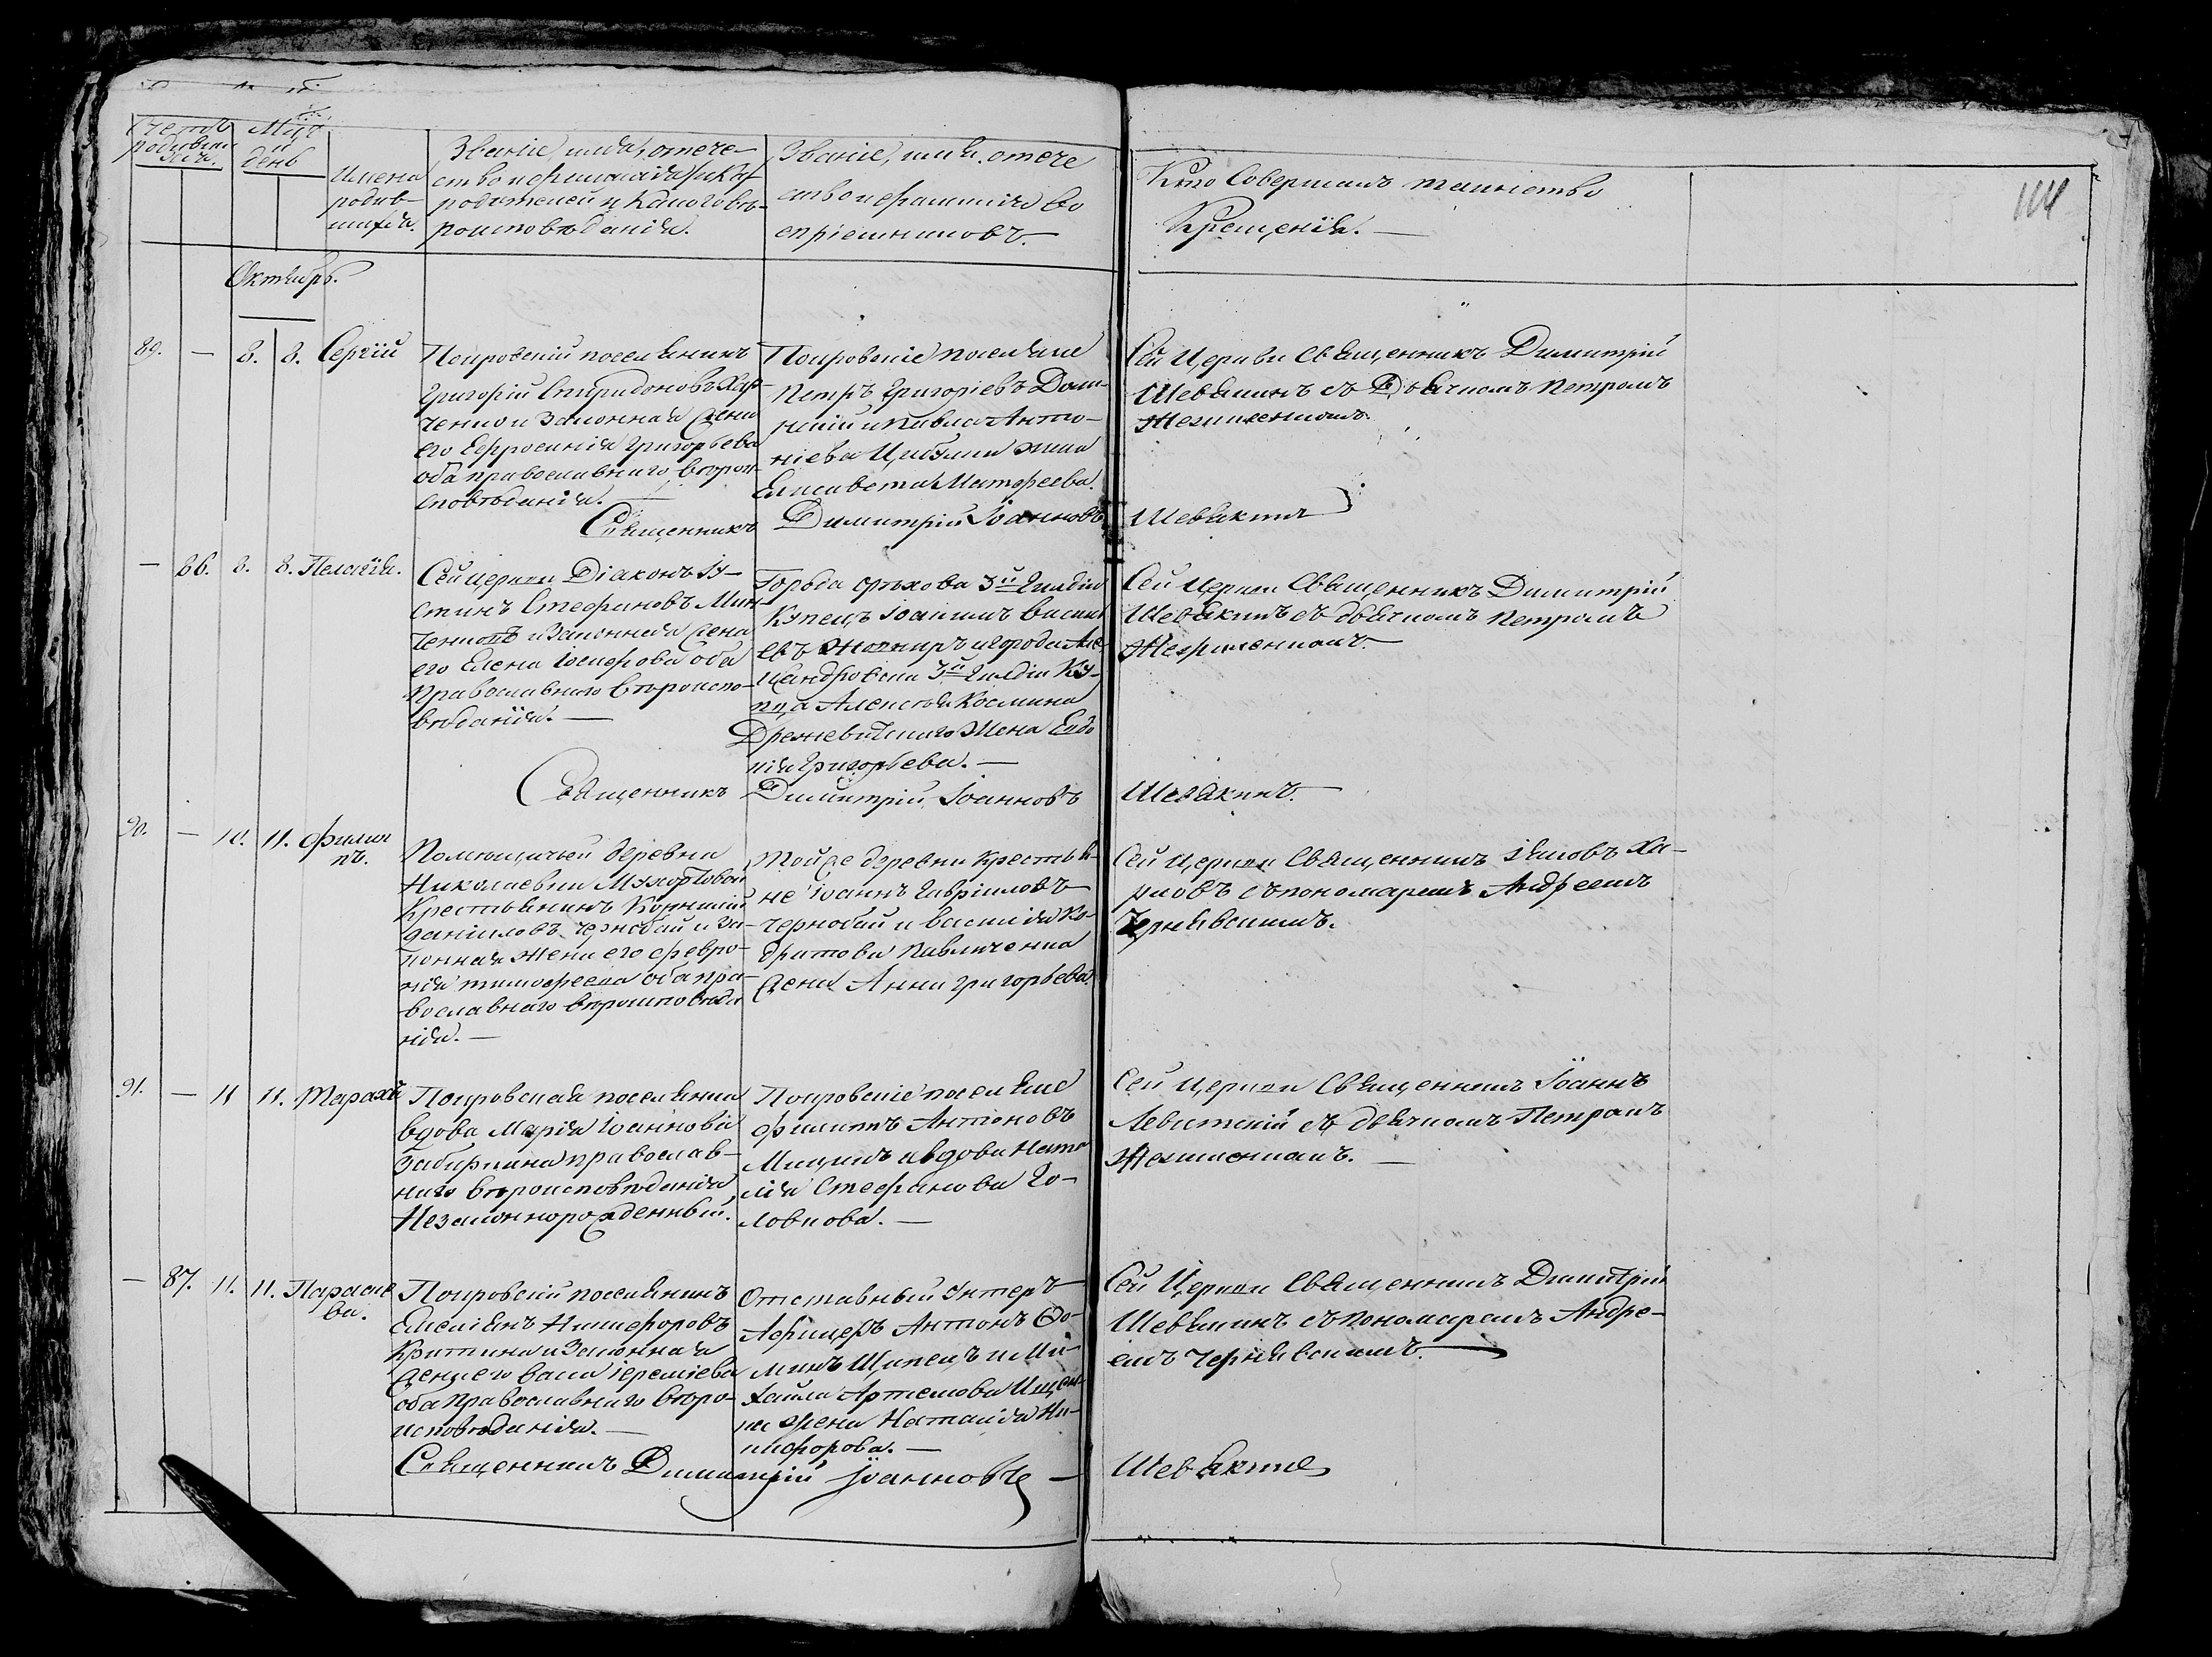 Счетъ
родившихся.
Мцъ
и
день
Имена
родив-
шихся.
Званіе, имя, отече-
ство и фамилія
родителей и какого вѣ-
роисповѣданія.
Званіе, имя, отече
ство и фамилія во
спріемниковъ.
Кто Совершалъ таинство
Крещенія.
114
Октябрь.
89. — 8. 8. Сергій
Покровскій поселянинъ
Григорій Спиридоновъ Хар-
ченко и Законная жена
его Ефросинія Григорьева
оба православнаго вѣрои-
сповѣданія.
Покровскіе поселяне
Петръ Григоріевъ
и Павла Анто-
ніева жена
Елисавета Матфеева.
Сей Церкви Священникъ Димитрій
Шевякинъ съ Дьячкомъ Петромъ
Священникъ Димитрій Іоанновъ Шевякинъ
— 86. 8. 8. Пелагія.
Сей церкви Діаконъ Іу-
стинъ Стефановъ Мин-
ченковъ и Законная жена
его Елена Іосифова оба
Православнаго вѣроиспо-
вѣданія. —
Города Орѣхова 3й Гилдіи
Купецъ Іоакимъ Василі
евъ и города Але-
ксандровска 3й Гилдіи Ку-
пца Алексѣя Космина
Жена Евдо
кія Григорьева. —
Сей Церкви Священникъ Димитрій
Шевякинъ съ дьячкомъ Петромъ
Священникъ Димитрій Іоанновъ Шевякинъ.
90. — 10. 11. Филип
пъ.
Помѣщичьей деревни
Николаевки Мухортовой
Крестьянинъ Корнилій
Даніиловъ Чернобай и за-
конная жена его Февро-
нія Тимофеева оба пра-
вославнаго вѣроисповѣда
нія. —
Той же деревни крестья-
не Іоаннъ Гавріиловъ
Чернобай и Василія Ко-
дратова Павличенка
жена Анна Григорьева.
Сей Церкви Священникъ Іаковъ Ха-
ровъ съ пономаремъ Андреемъ
Чернявскимъ.
91. — 11 11. Тарахій
Покровская поселянка
вдова Марія Іоаннова
православ-
наго вѣроисповѣданія
Незаконнорожденный.
Покровскіе поселяне
Филиппъ Антоновъ
и вдова Ната
лія Стефанова Го-
ловкова. —
Сей Церкви Священникъ Іоаннъ
Левитскій съ дьячкомъ Петромъ
— 87. 11. 11. Параске
ва.
Покровскій поселянинъ
Емеліянъ Никифоровъ
и Законная
жена его Васса Іереміева
оба Православнаго вѣро-
исповѣданія. —
Отставный Унтеръ
Афицеръ Антонъ Фо-
минъ Щипецъ и Ми-
хаила Артемова Ищен-
ка жена Наталія Ни-
кифорова. —
Сей Церкви Священникъ Димитрій
Шевякинъ съ пономаремъ Андре-
емъ Чернявскимъ.
Священникъ Димитрій Іоанновъ — Шевякинъ